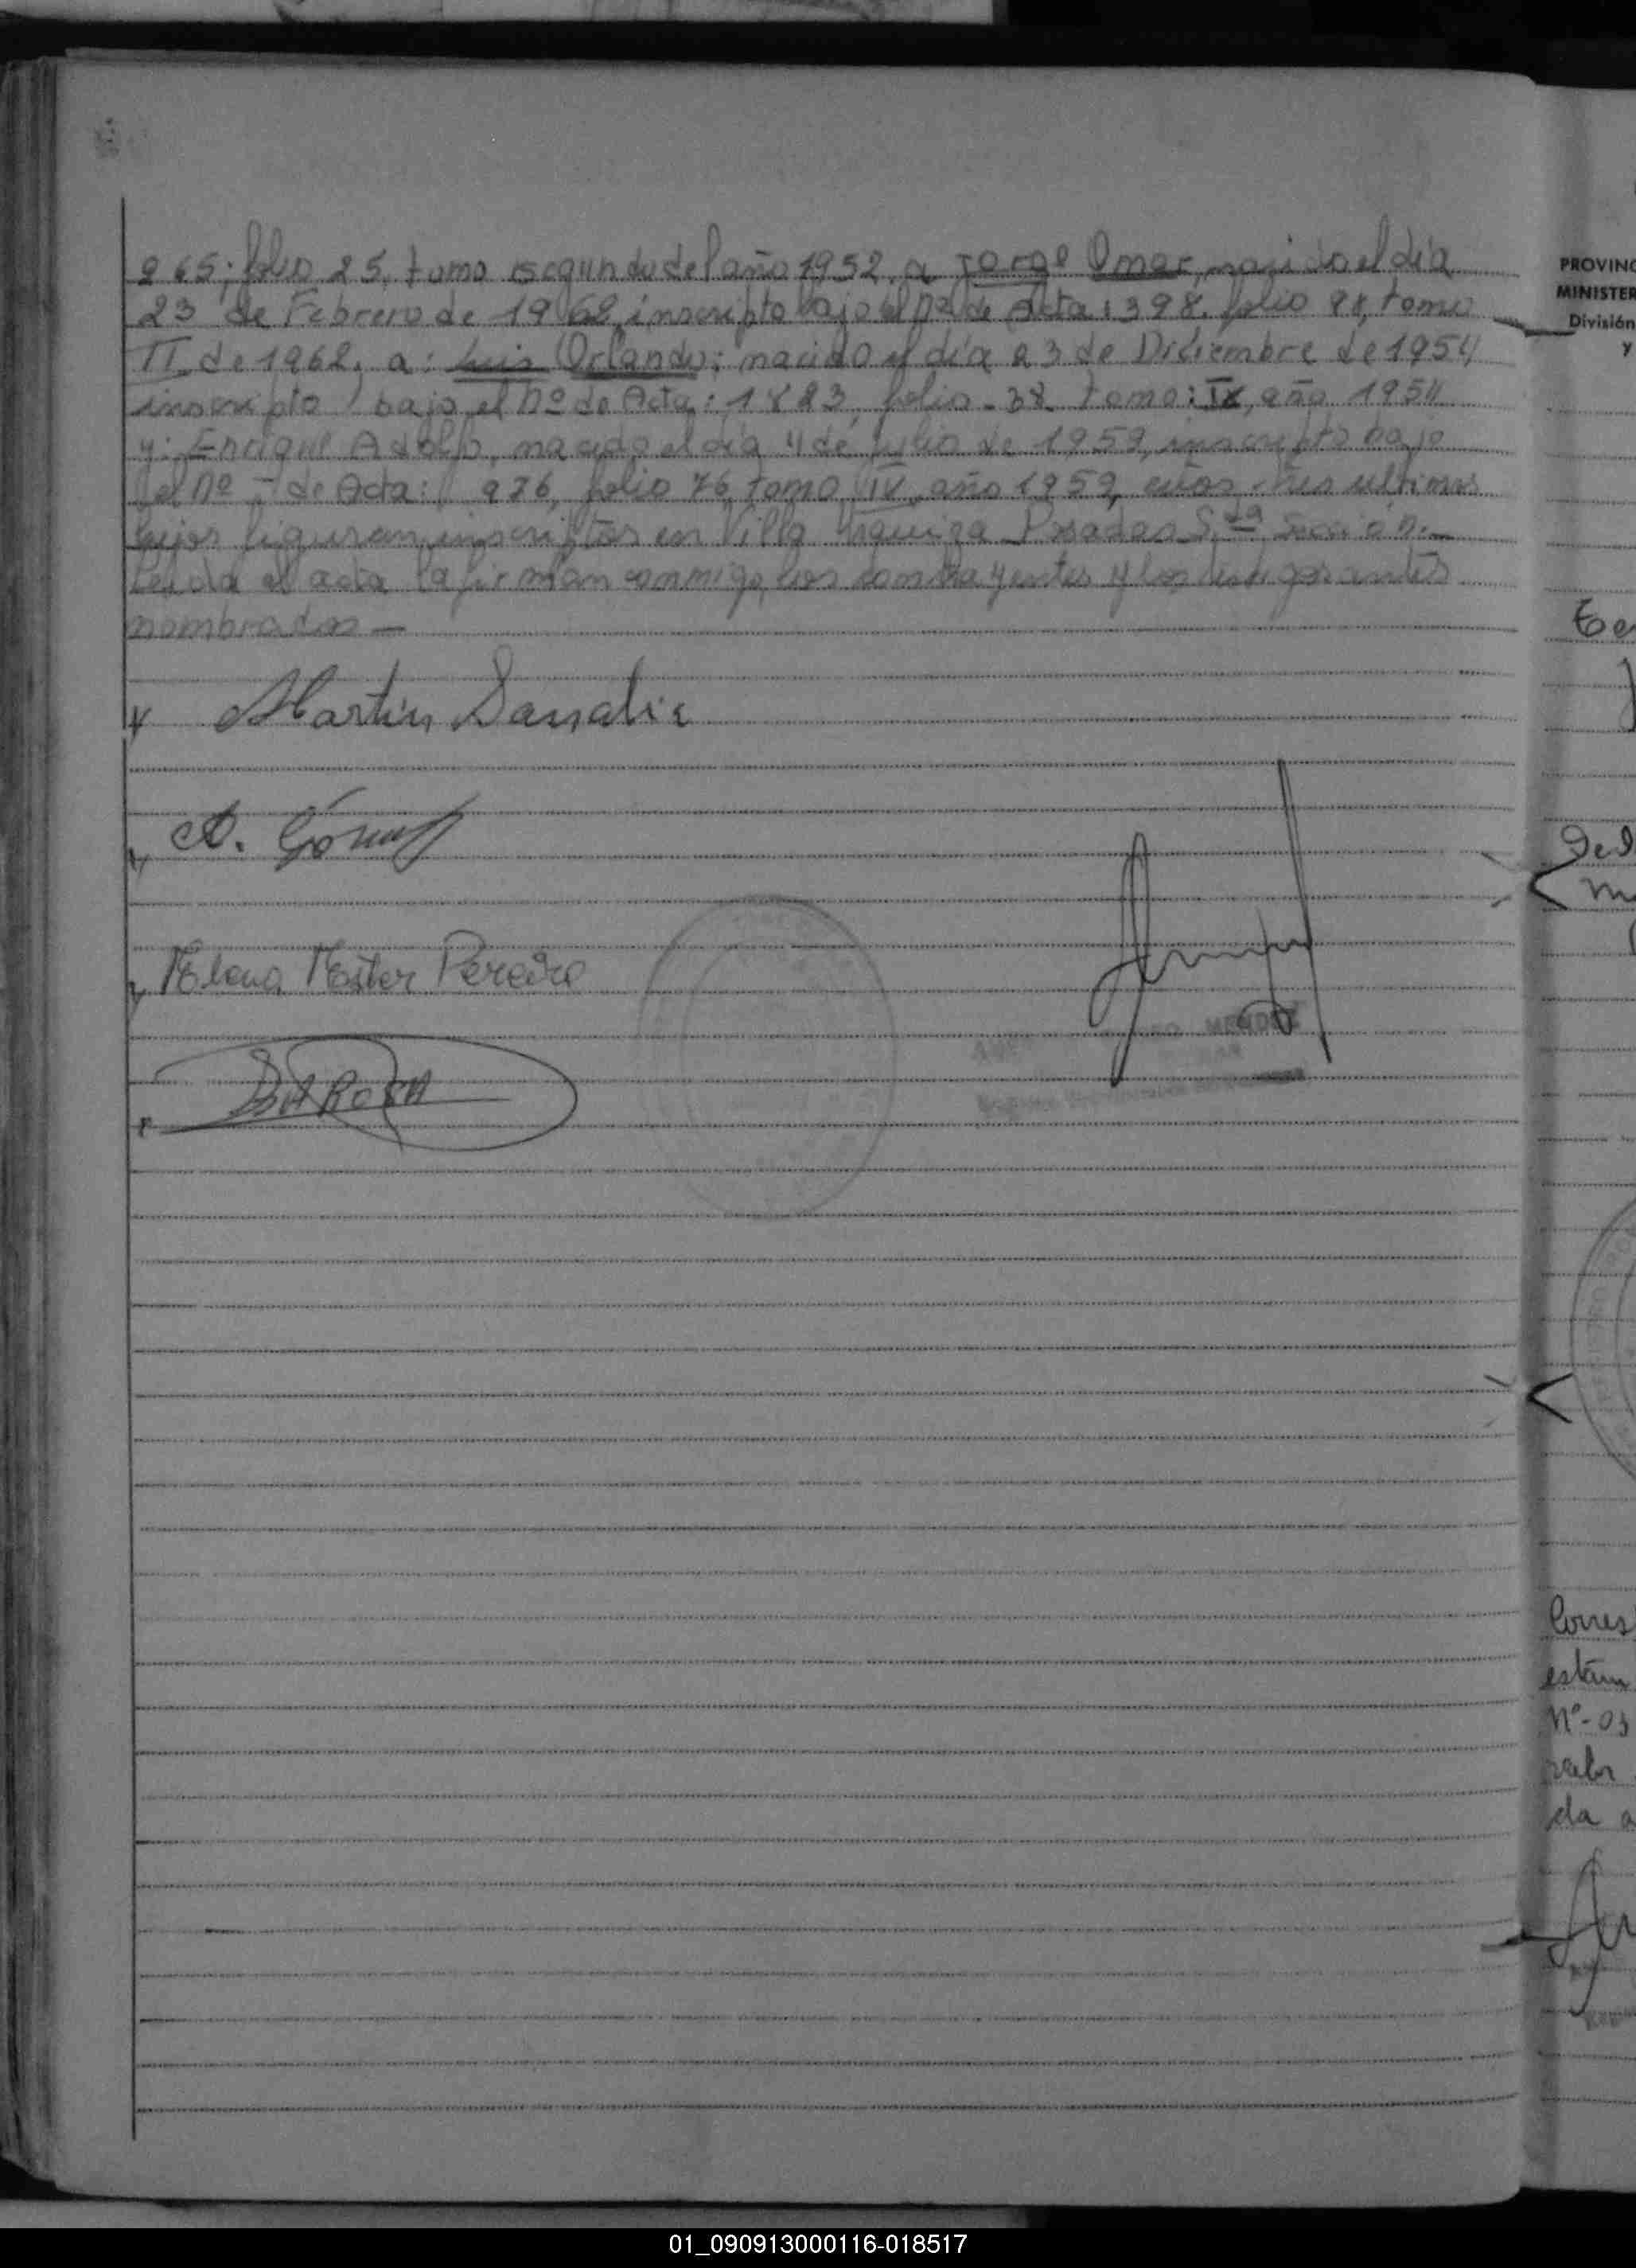 265; folio 25, tomo segundo del año 1952, a Jorge Omar, nacido el día
23 de Febrero de 1962, inscripto bajo el nº de Acta: 398, folio 98, tomo
II de 1962, a: Luis Orlando; nacido el día 23 de Diciembre de 1954
inscripto bajo el Nº de Acta: 1823, folio 38 tomo: IX, año 1954
y: Enrique Adolfo, nacido el día 4 de Julio de 1959, inscripto bajo
el Nº de Acta: 976, folio 76, tomo IV, año 1959, tres ultimos
hijos figuran inscriptos en Villa Urquiza Posadas Sección.
Leida el acta la firman conmigo, los contrayentes y los testigos antes
nombrados —
Martin
A. Gómez
Elena Ester Pereira
DA ROSA
MENDEZ
PROVINC
MINISTER
División
Y
Corres
estam
Nº-03
da a
01_090913000116-018517